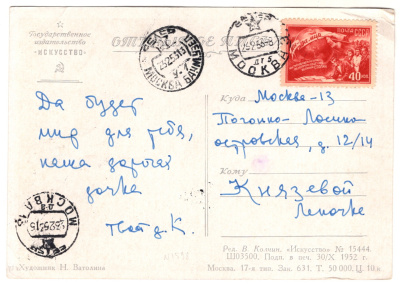 Государственное
издательство
"ИСКУССТВО"
МОСКВА
МОСКВА
40
Да будет
мир для тебя,
наша дорогая
дочка
Твой д. К.
Куда Москва-13
Погонно-Лосино-
островская, д. 12/14
Кому
Князевой
Леночке
МОСКВА
Художник Н. Ватолина
Ред. В. Калнин. «Искусство» № 15444.
Ш03500. Подп. в печ. 30/X 1952 г.
Москва. 17-я тип. Зак. 631. Т. 50,000. Ц. 10 к.